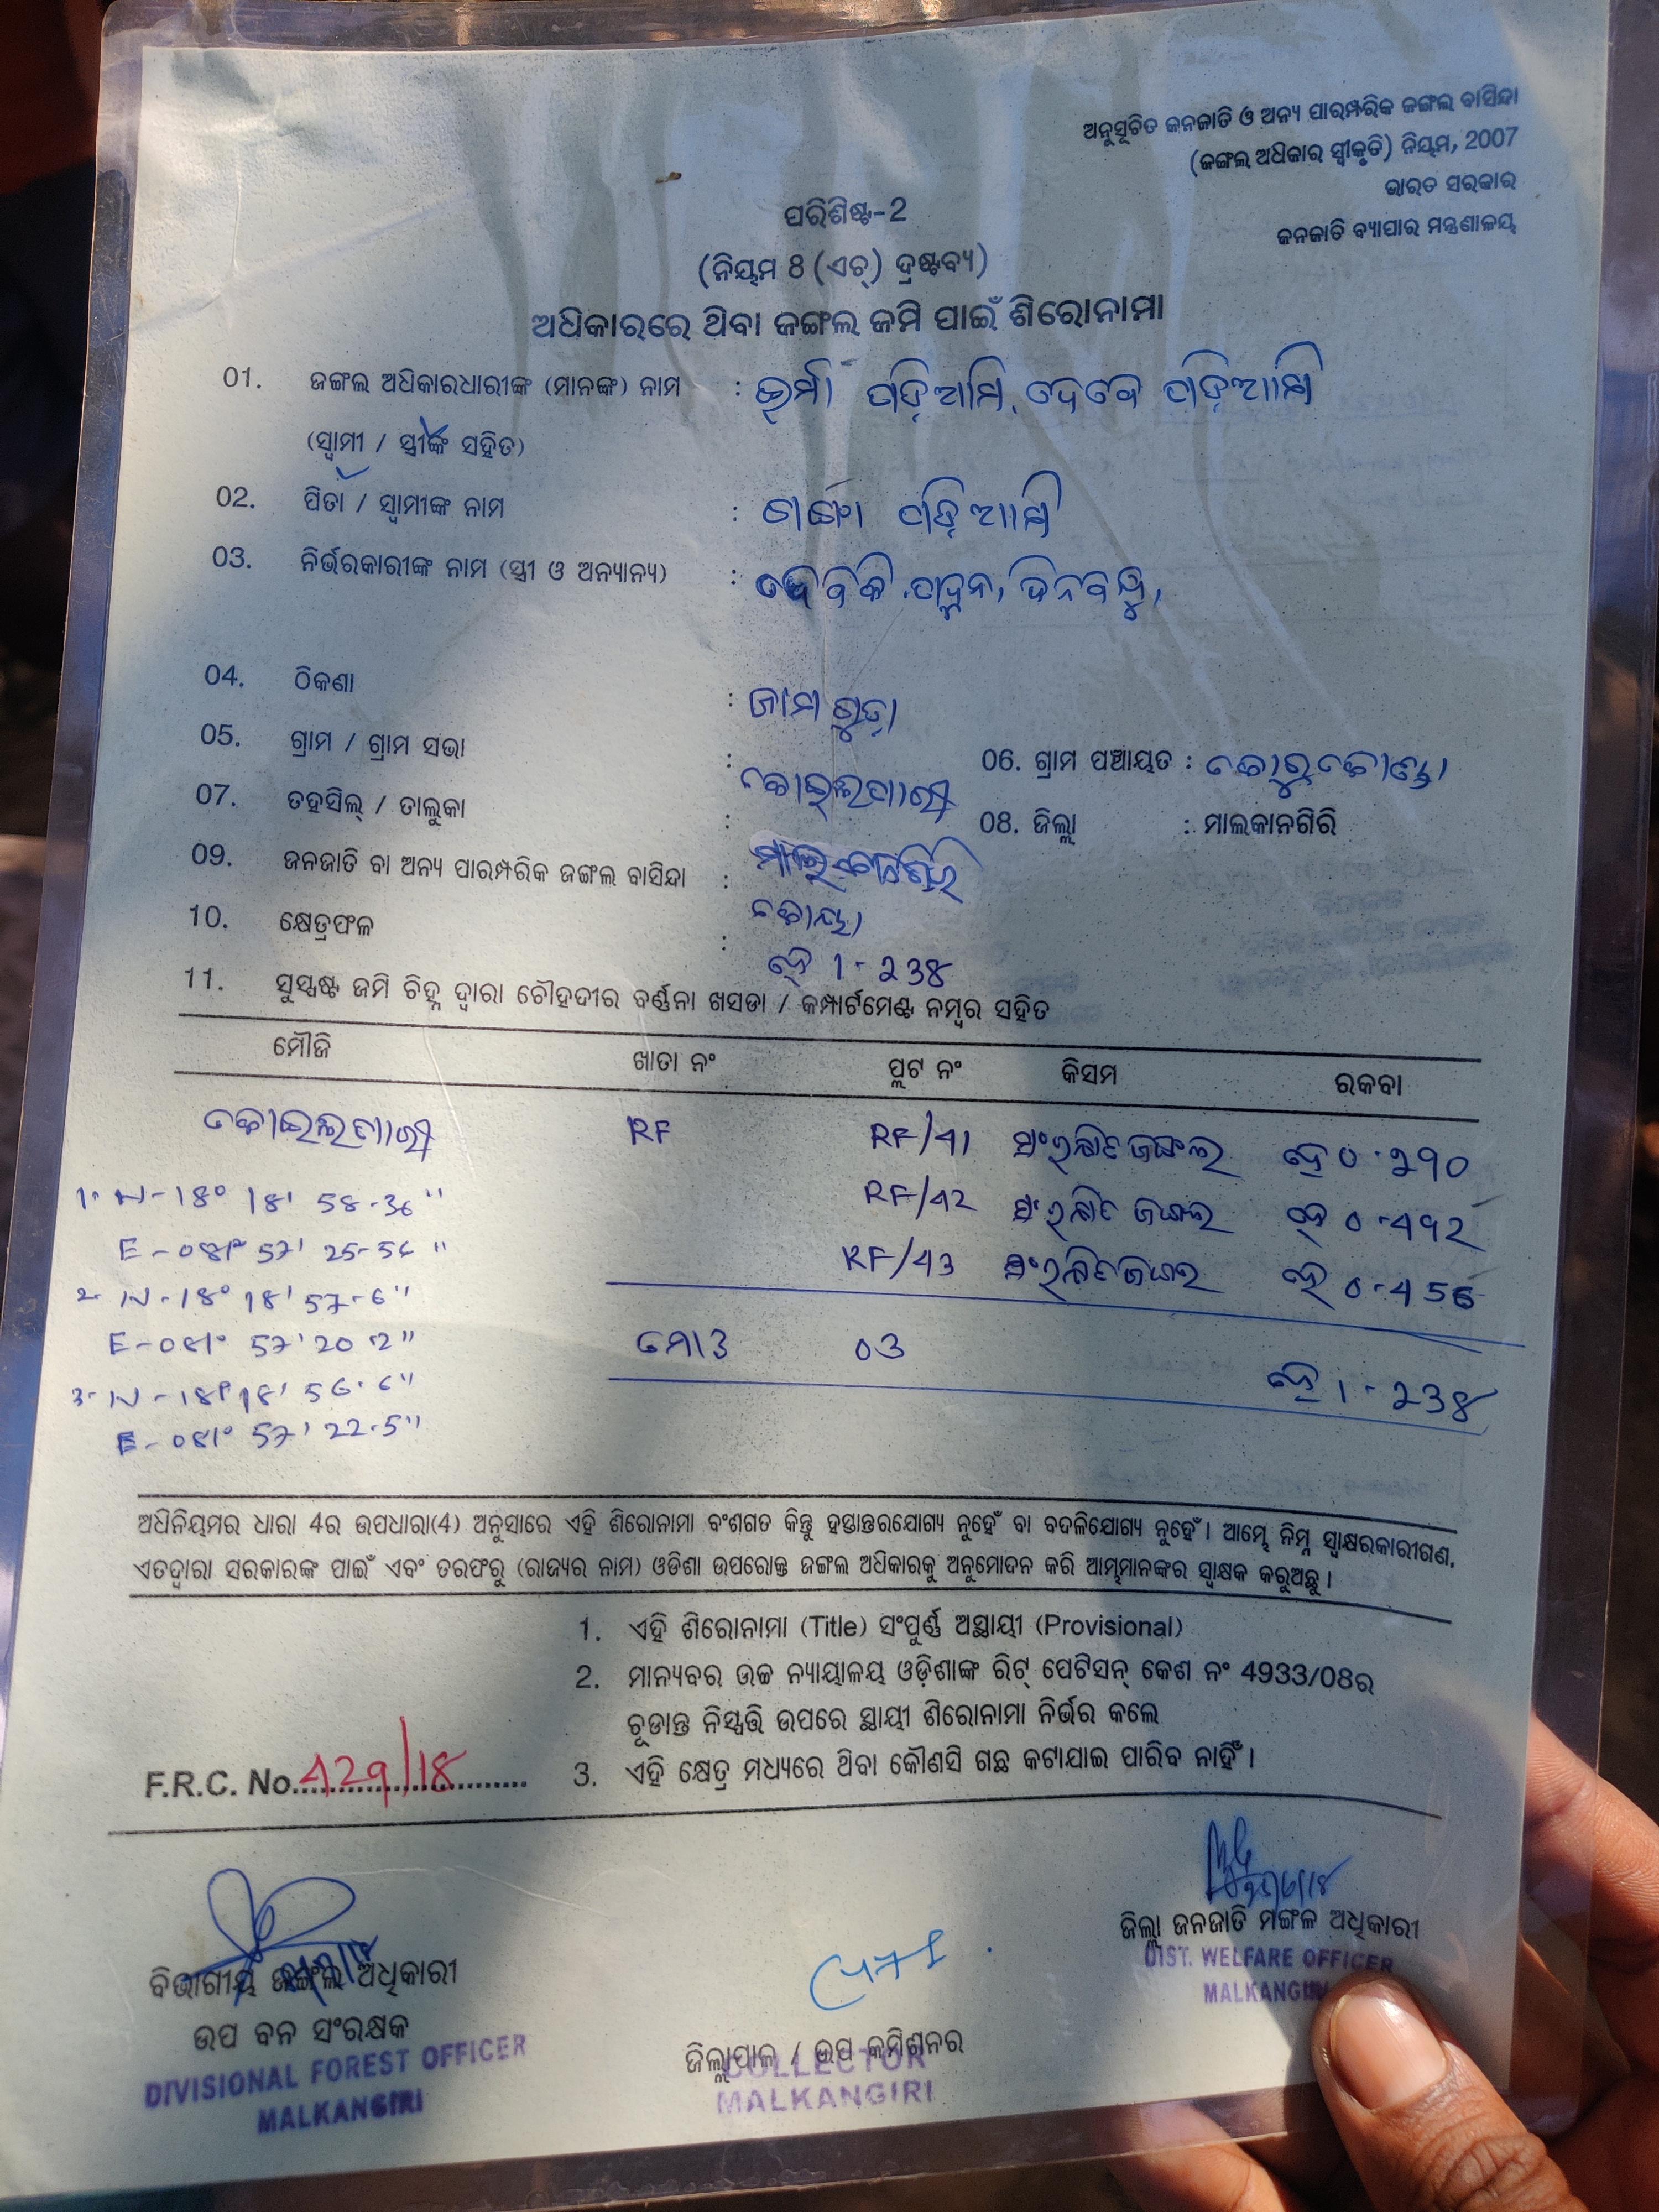 ଅନୁସୂଚିତ ଜନଜାତି ଓ ଅନ୍ୟ ପାରମ୍ପରିକ ଜଙ୍ଗଲ ବାସିନ୍ଦା
(ଜଙ୍ଗଲ ଅଧିକାର ସ୍ୱୀକୃତି) ନିୟମ, 2007
ଭାରତ ସରକାର
ଜନଜାତି ବ୍ୟାପାର ମନ୍ତ୍ରଣାଳୟ
ପରିଶିଷ୍ଟ-2
(ନିୟମ 8 (ଏଚ୍) ଦ୍ରଷ୍ଟବ୍ୟ)
ଅଧିକାରରେ ଥିବା ଜଙ୍ଗଲ ଜମି ପାଇଁ ଶିରୋନାମା
01. ଜଙ୍ଗଲ ଅଧିକାରଧାରୀଙ୍କ (ମାନଙ୍କ) ନାମ : ପଡ଼ିଆମି, ଦେବେ ପଡ଼ିଆମି
(ସ୍ୱାମୀ / ସ୍ତ୍ରୀଙ୍କ ସହିତ)
02. ପିତା / ସ୍ୱାମୀଙ୍କ ନାମ : ଗଙ୍ଗା ପଡ଼ିଆମି
03. ନିର୍ଭରକାରୀଙ୍କ ନାମ (ସ୍ତ୍ରୀ ଓ ଅନ୍ୟାନ୍ୟ) :
04. ଠିକଣା :
05. ଗ୍ରାମ / ଗ୍ରାମ ସଭା : କୋଇଲପାରୀ
06. ଗ୍ରାମ ପଞ୍ଚାୟତ : କୋରୁକୋଣ୍ଡା
07. ତହସିଲ୍ / ତାଲୁକା : ମାଲକାନଗିରି
08. ଜିଲ୍ଲା : ମାଲକାନଗିରି
09. ଜନଜାତି ବା ଅନ୍ୟ ପାରମ୍ପରିକ ଜଙ୍ଗଲ ବାସିନ୍ଦା : କୋୟା
10. କ୍ଷେତ୍ରଫଳ : ହେ 1-୨3୪
11. ସୁସ୍ପଷ୍ଟ ଜମି ଚିହ୍ନ ଦ୍ୱାରା ଚୌହଦୀର ବର୍ଣ୍ଣନା ଖସଡା / କମ୍ପାର୍ଟମେଣ୍ଟ ନମ୍ବର ସହିତ
ମୌଜି ଖାତା ନଂ ପ୍ଲଟ ନଂ କିସମ ରକବା
କୋଇଲପାରୀ RF RF/41 ସଂରକ୍ଷିତ ଜଙ୍ଗଲ ହେ 0.290
RF/42 ସଂରକ୍ଷିତ ଜଙ୍ଗଲ ହେ 0-492
RF/43 ସଂରକ୍ଷିତ ଜଙ୍ଗଲ ହେ 0-456
ମୋଟ 03 ହେ 1-23୪
1. N-18° 18' 58.36"
E-081° 57' 25-56"
2. N-18° 18' 57-6"
E-081° 57' 20.2"
3. N-18° 18' 56.6"
E-081° 57' 22.5"
ଅଧିନିୟମର ଧାରା 4ର ଉପଧାରା(4) ଅନୁସାରେ ଏହି ଶିରୋନାମା ବଂଶଗତ କିନ୍ତୁ ହସ୍ତାନ୍ତରଯୋଗ୍ୟ ନୁହେଁ ବା ବଦଳିଯୋଗ୍ୟ ନୁହେଁ । ଆମ୍ଭେ ନିମ୍ନ ସ୍ୱାକ୍ଷରକାରୀଗଣ,
ଏତଦ୍ଦ୍ୱାରା ସରକାରଙ୍କ ପାଇଁ ଏବଂ ତରଫରୁ (ରାଜ୍ୟର ନାମ) ଓଡିଶା ଉପରୋକ୍ତ ଜଙ୍ଗଲ ଅଧିକାରକୁ ଅନୁମୋଦନ କରି ଆମ୍ଭମାନଙ୍କର ସ୍ୱାକ୍ଷକ କରୁଅଛୁ ।
1. ଏହି ଶିରୋନାମା (Title) ସଂପୂର୍ଣ୍ଣ ଅସ୍ଥାୟୀ (Provisional)
2. ମାନ୍ୟବର ଉଚ୍ଚ ନ୍ୟାୟାଳୟ ଓଡ଼ିଶାଙ୍କ ରିଟ୍ ପେଟିସନ୍ କେଶ ନଂ 4933/08ର
ଚୂଡାନ୍ତ ନିସ୍ପତ୍ତି ଉପରେ ସ୍ଥାୟୀ ଶିରୋନାମା ନିର୍ଭର କଲେ
3. ଏହି କ୍ଷେତ୍ର ମଧ୍ୟରେ ଥିବା କୌଣସି ଗଛ କଟାଯାଇ ପାରିବ ନାହିଁ ।
F.R.C. No. 429/18
ବିଭାଗୀୟ ଜଙ୍ଗଲ ଅଧିକାରୀ
ଉପ ବନ ସଂରକ୍ଷକ
DIVISIONAL FOREST OFFICER
MALKANGIRI
ଜିଲ୍ଲାପାଳ / ଉପ କମିଶନର
COLLECTOR
MALKANGIRI
ଜିଲ୍ଲା ଜନଜାତି ମଙ୍ଗଳ ଅଧିକାରୀ
DIST. WELFARE OFFICER
MALKANGIRI